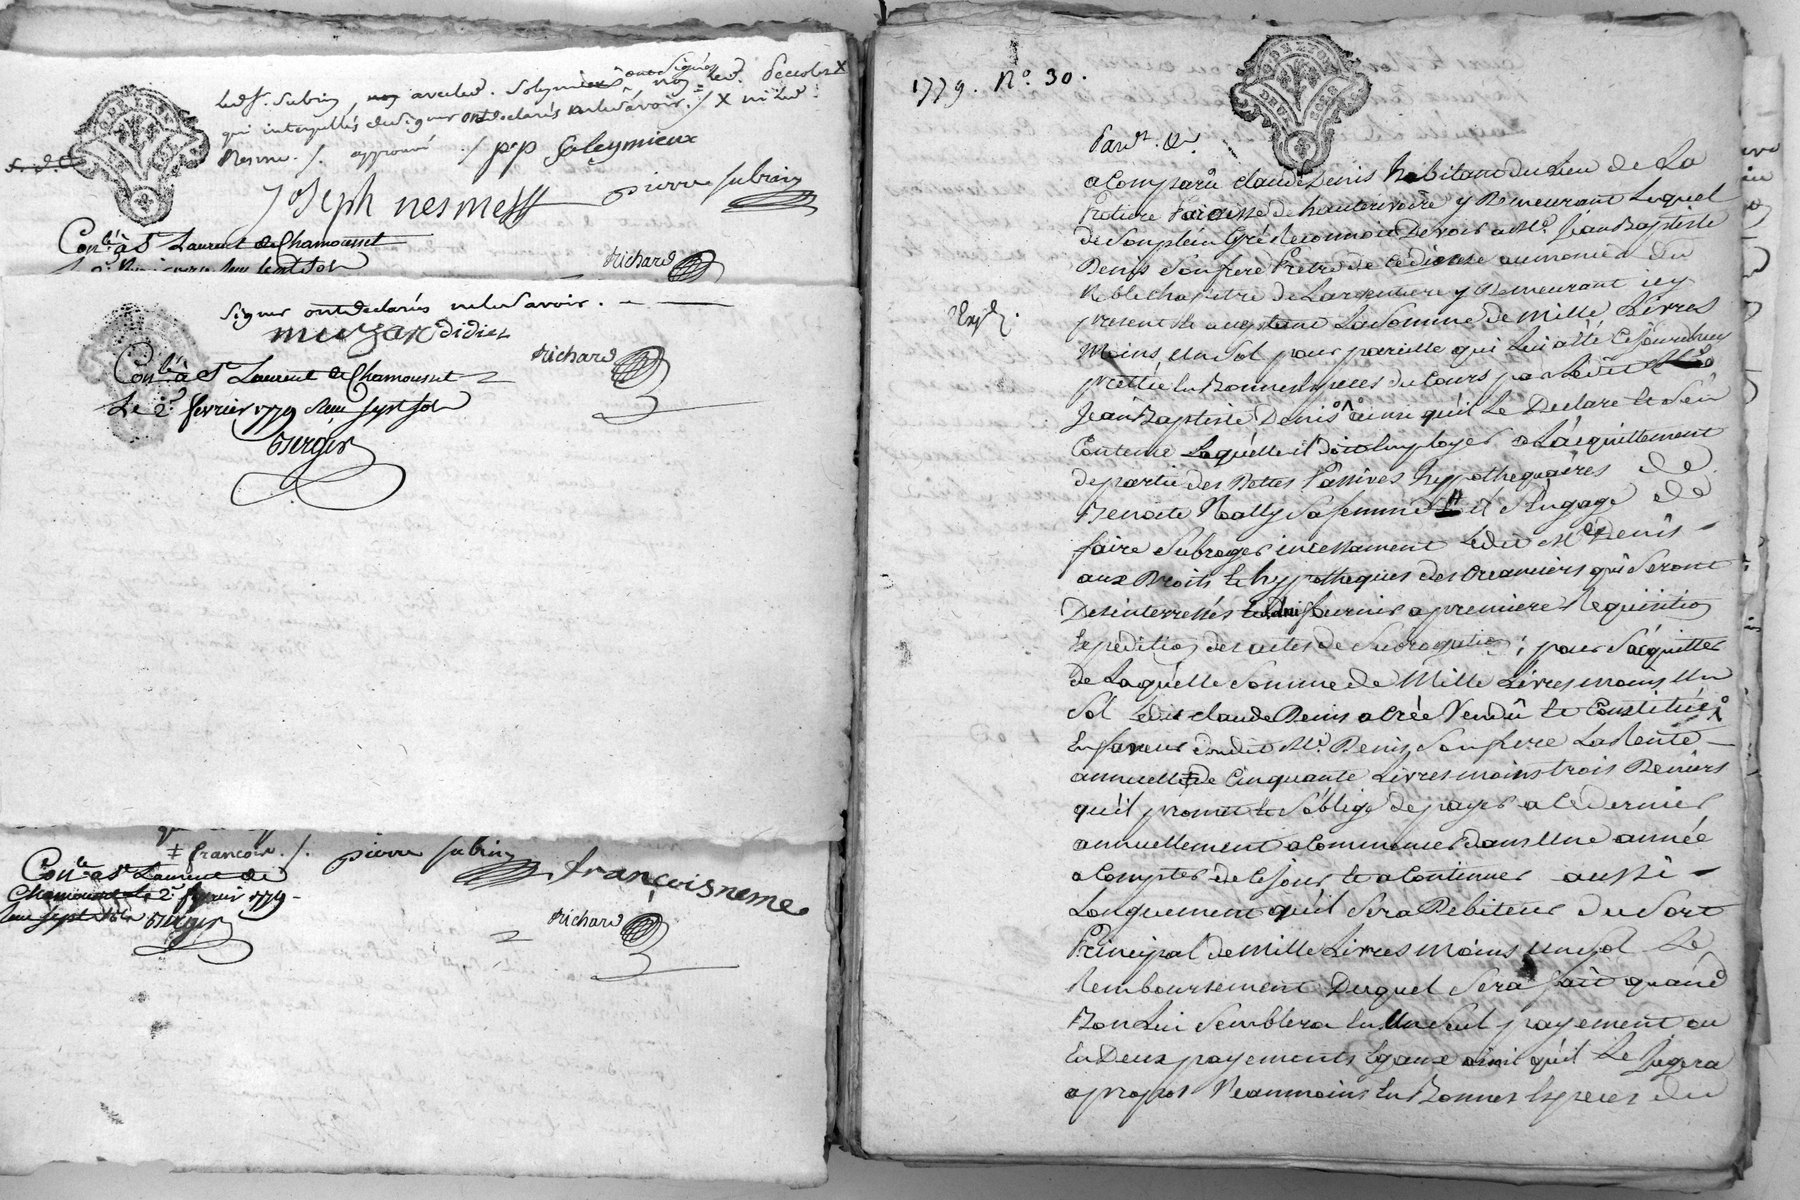 led. Sr. Subrin, avec led. Soleymieux non led.
qui interpellés de signer ont declarés ne le savoir ./. X ni led.
Nesme ./. approuvé ./. pp Soleymieux
Joseph nesme pierre subrin
Conlé. à St. Laurent de Chamousset
Richard
signer ont declarés ne le savoir.
didier
Richard
Conlé. à St. Laurent de Chamousset
Le 2e. fevrier 1779 Reçu sept sols
‡ françois ./. pierre subrin françois neme
Conlé. a St. Laurent de
Chamousset Le 2e. fevrier 1779
Reçu sept sols
Richard
1779. No. 30.
Pardt. &c.
a Comparû claude Denis habitant du Lieu de La
Paroisse de hauterivoire y Demeurant Lequel
de Son plein Gré Reconnoit Devoir a Me. Jean Baptiste
Denis Son frere Prêtre de ce diocese aumonier du
Noble Chapitre de Largentiere y Demeurant icy
Expd.
present et acceptant La Somme de Mille Livres
Moins Un Sol pour pareille qui Lui a été Cejourdhuy
prettée En Bonnes Especes du Cours par Ledit Me.
Jean Baptiste Denis ainsi qu'il Le Declare
Contente Laquelle il Doit Employer a L'acquittement
de partie des Dettes Passives hypothequaires de
Benoite Noally Sa femme et S'Engage de
faire Subroger incessament Ledit Me. Denis
aux Droits et hypotheques des Creanciers qui Seront
Desinterressés fournir a premiere Requisition
Expedition des actes de Subrogation ; pour S'acquitter
de Laquelle Somme de Mille Livres moins Un
Sol Ledit claude Denis a Créé Vendû et Constitué
En faveur dudit Me. Denis Son frere La Rente
annuelle de Cinquante Livres moins trois Deniers
qu'il promet et S'oblige de payer a Ce Dernier
annuellement a Commencer Dans Une année
a Compter de Ce jour et a Continuer aussi
Longuement qu'il Sera Debiteur du Sort
Principal de Mille Livres Moins un Sol Le
Remboursement Duquel Sera fait quand
Bon Lui Semblera En Un Seul payement ou
En Deux payements Egaux ainsi qu'il Le Jugera
apropos Neanmoins En Bonnes Especes du